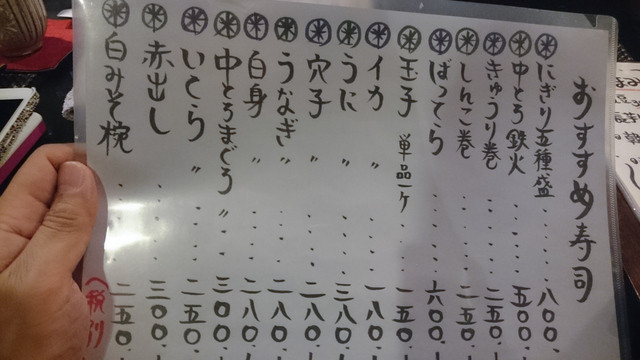 おすすめ寿司
にぎり五種盛・・・・八〇〇
中とろ鉄火・・・・五〇〇
きゅうり巻・・・・二五〇
しんこ巻・・・・二五〇
ばってら・・・・六〇〇
玉子 単品一ヶ・・一五〇
イカ 〃・・・・一八〇
うに 〃・・・・三八〇
穴子 〃・・・・二八〇
うなぎ 〃・・・・二八〇
白身 〃・・・・二八〇
中とろまぐろ 〃・・三〇〇
いくら 〃・・・・二五〇
赤出し・・・・三〇〇
白みそ椀・・・・二五〇
(税別